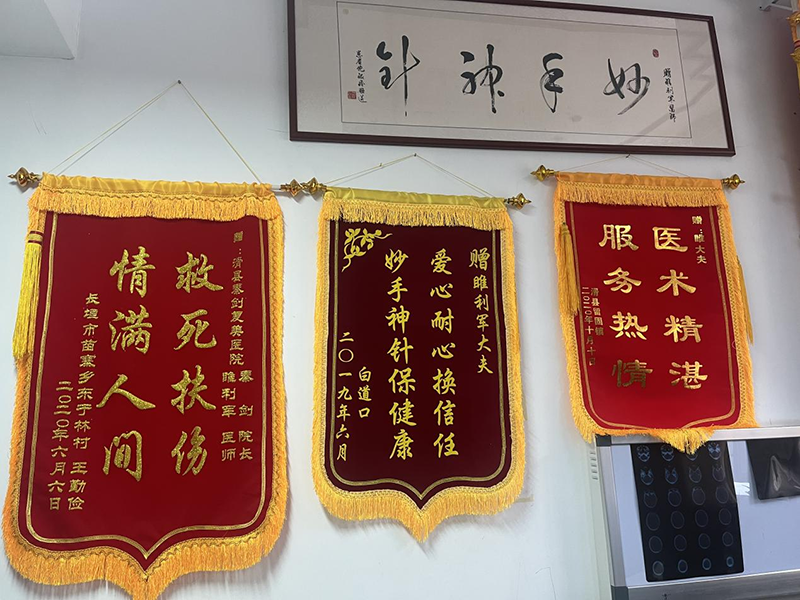 妙手神针
赠:滑县秦剑复美医院 秦剑院长
睢利军 医师
救死扶伤
情满人间
长垣市苗寨乡东于林村 王勤俭
二〇二〇年六月六日
赠睢利军大夫
爱心耐心换信任
妙手神针保健康
白道口
二〇一九年六月
赠:睢大夫
医术精湛
服务热情
滑县留固镇
二〇二〇年十月十日